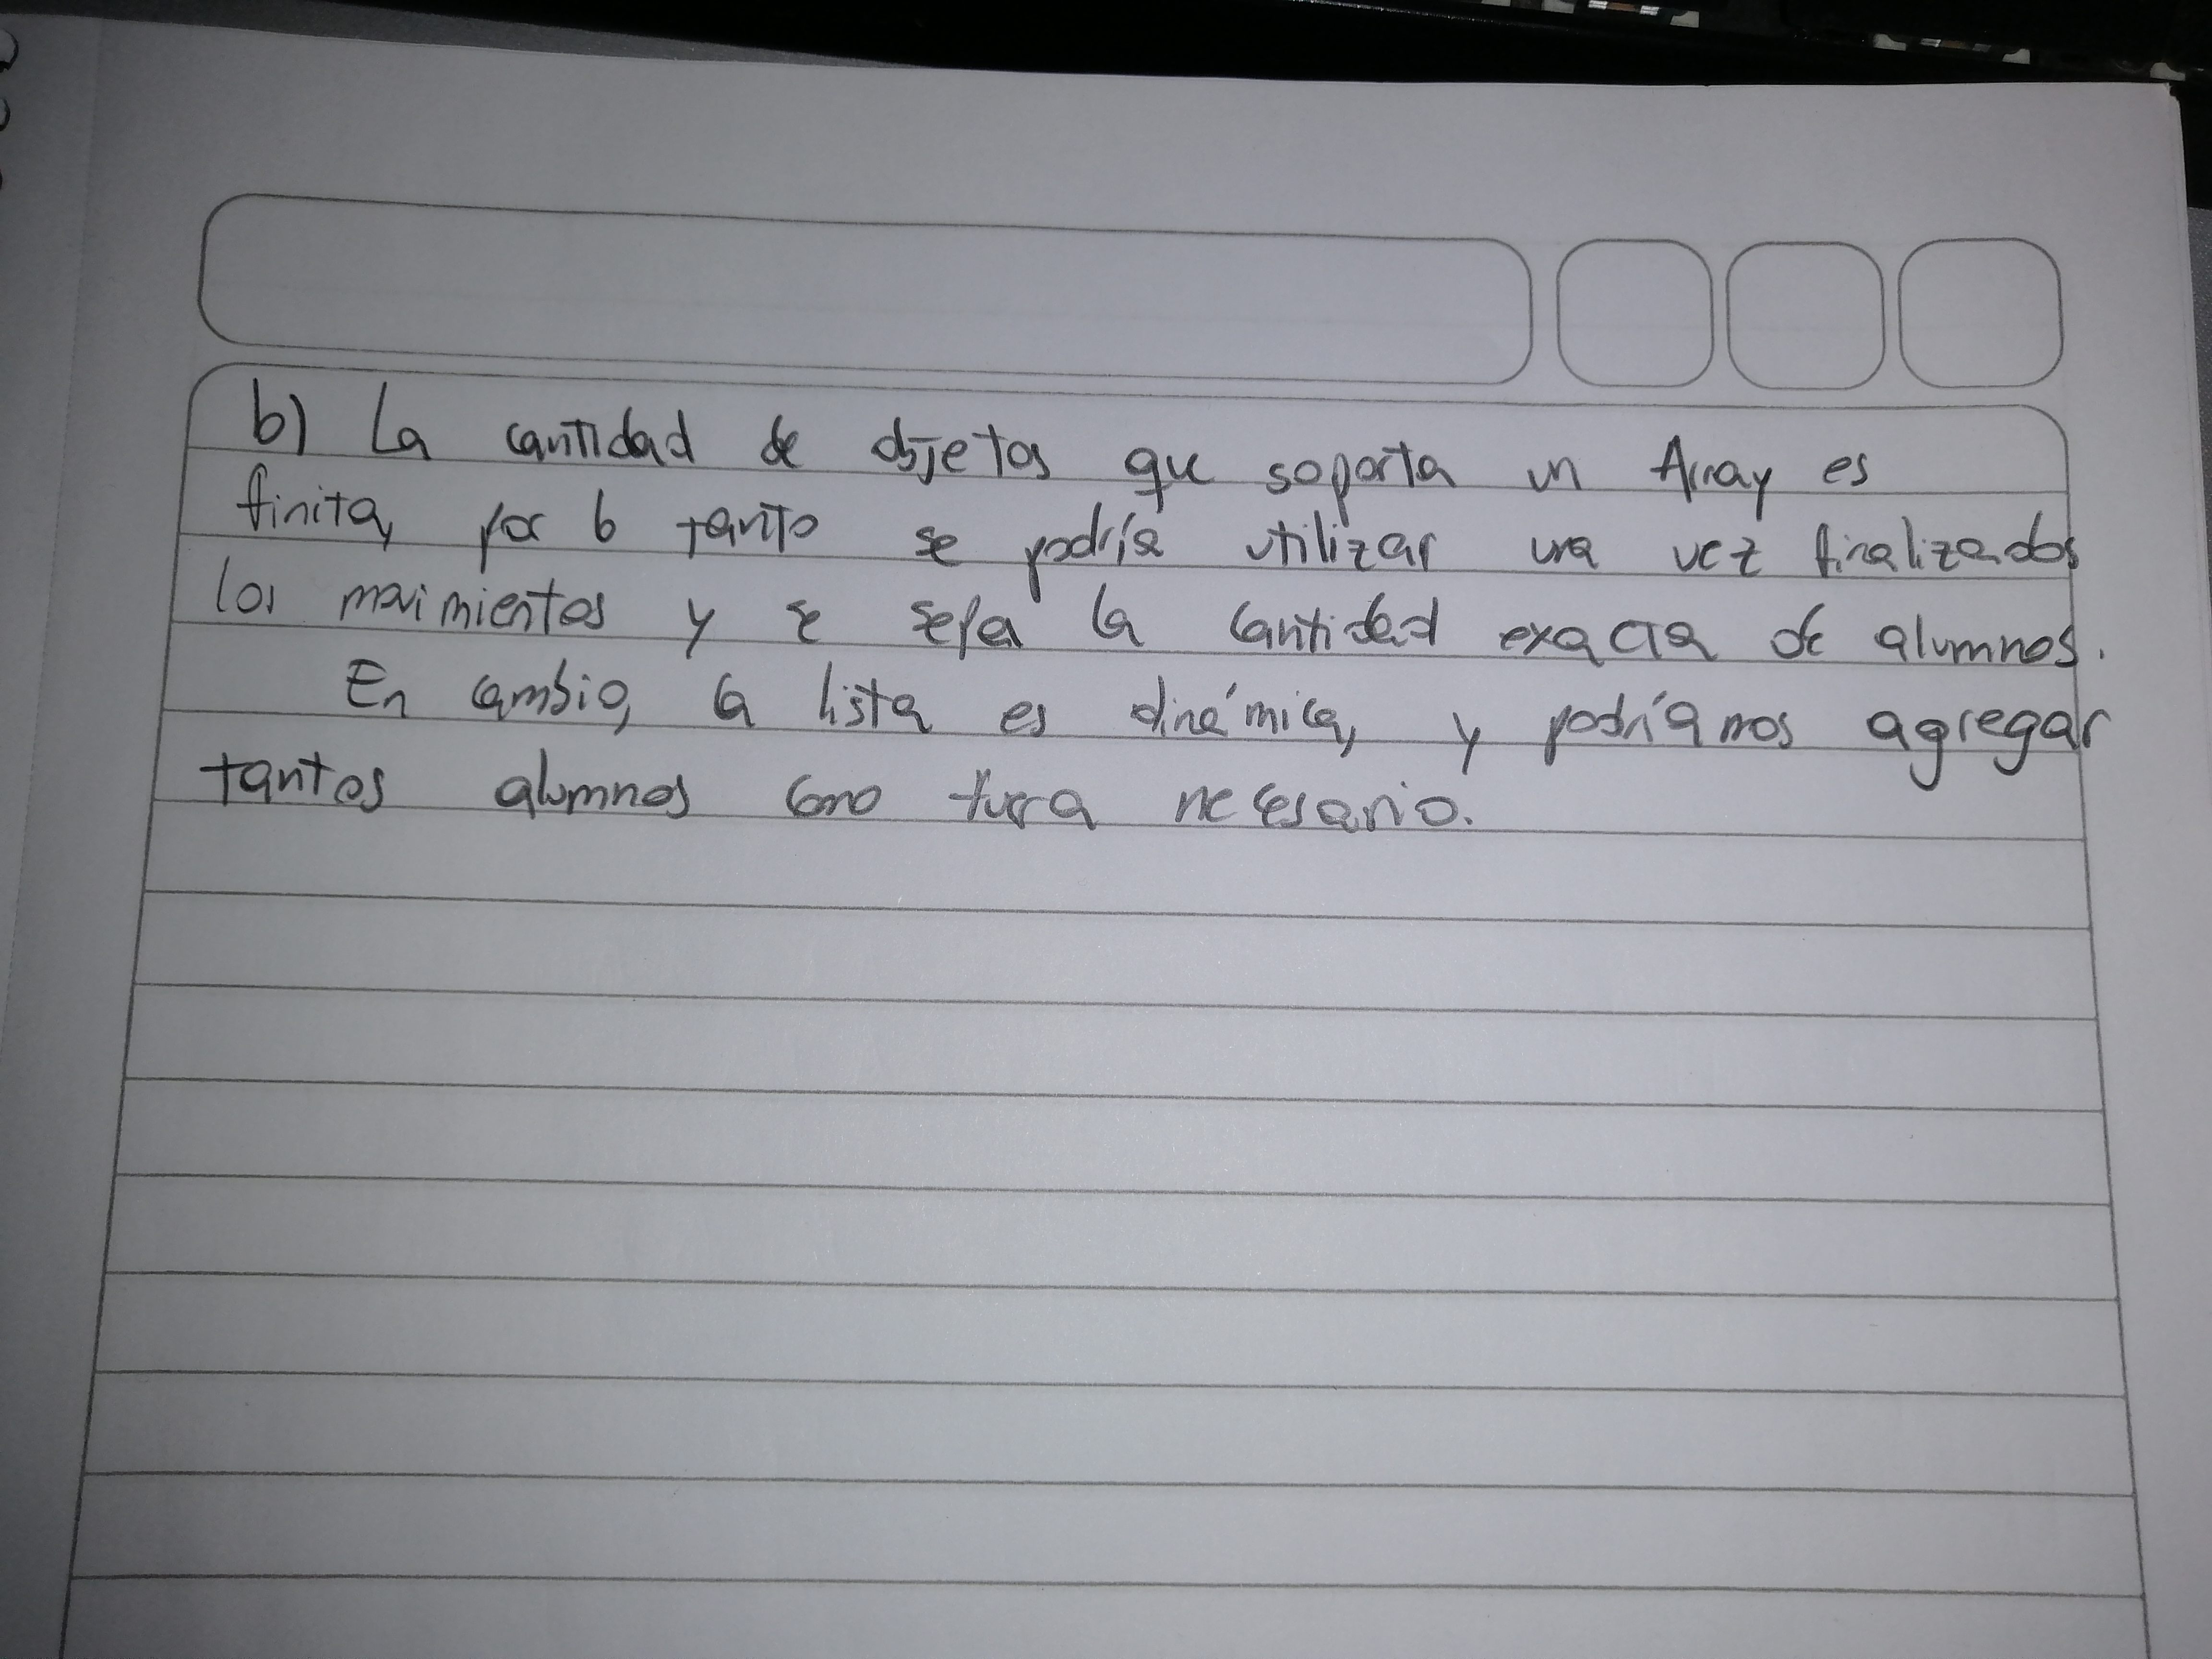 b) La cantidad de objetos que soporta un Array es
finita, por lo tanto se podría utilizar una vez finalizados
los movimientos y se sepa la cantidad exacta de alumnos.
En cambio, la lista es dinámica, y podríamos agregar
tantos alumnos como fuera necesario.